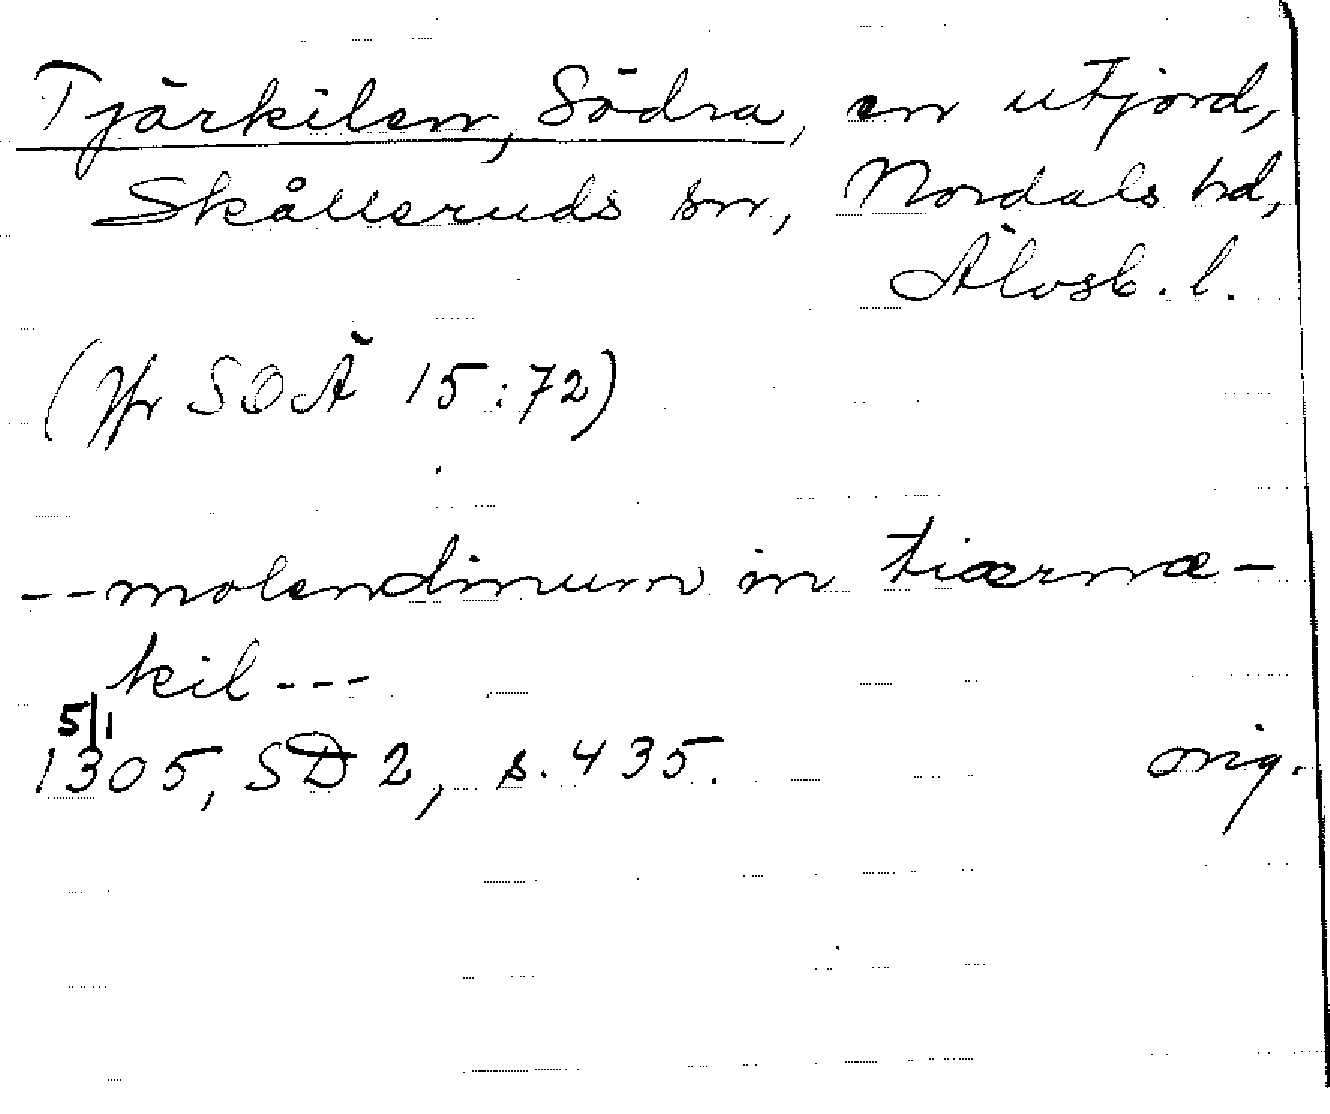 Tjärkilen, Södra, en utjord,
Skålleruds sn, Nordals hd,
Älvsb. l.
(Jfr SOÄ 15:72)
--molendinum in tiærnæ-
kil---
5/1
1305, SD 2, s. 435. orig.